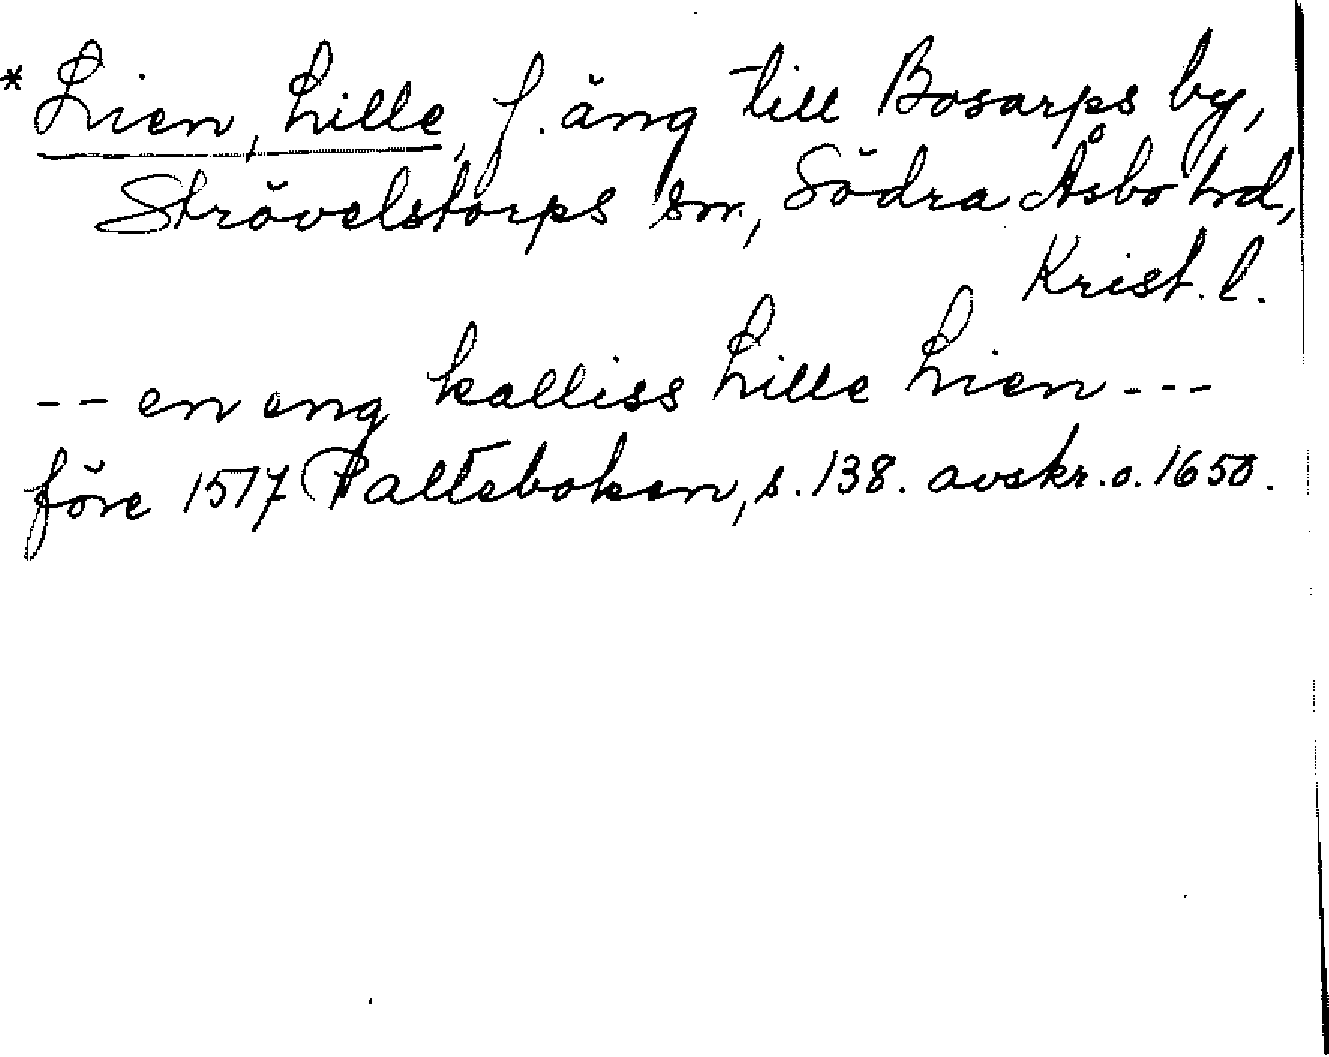 * Lien, Lille, f. äng till Bosarps by,
Strövelstorps sn, Södra Åsbo hd,
Krist. l.
-- en eng kalliss Lille Lien ---
före 1517 Palteboken, s. 138. avskr. o. 1650.